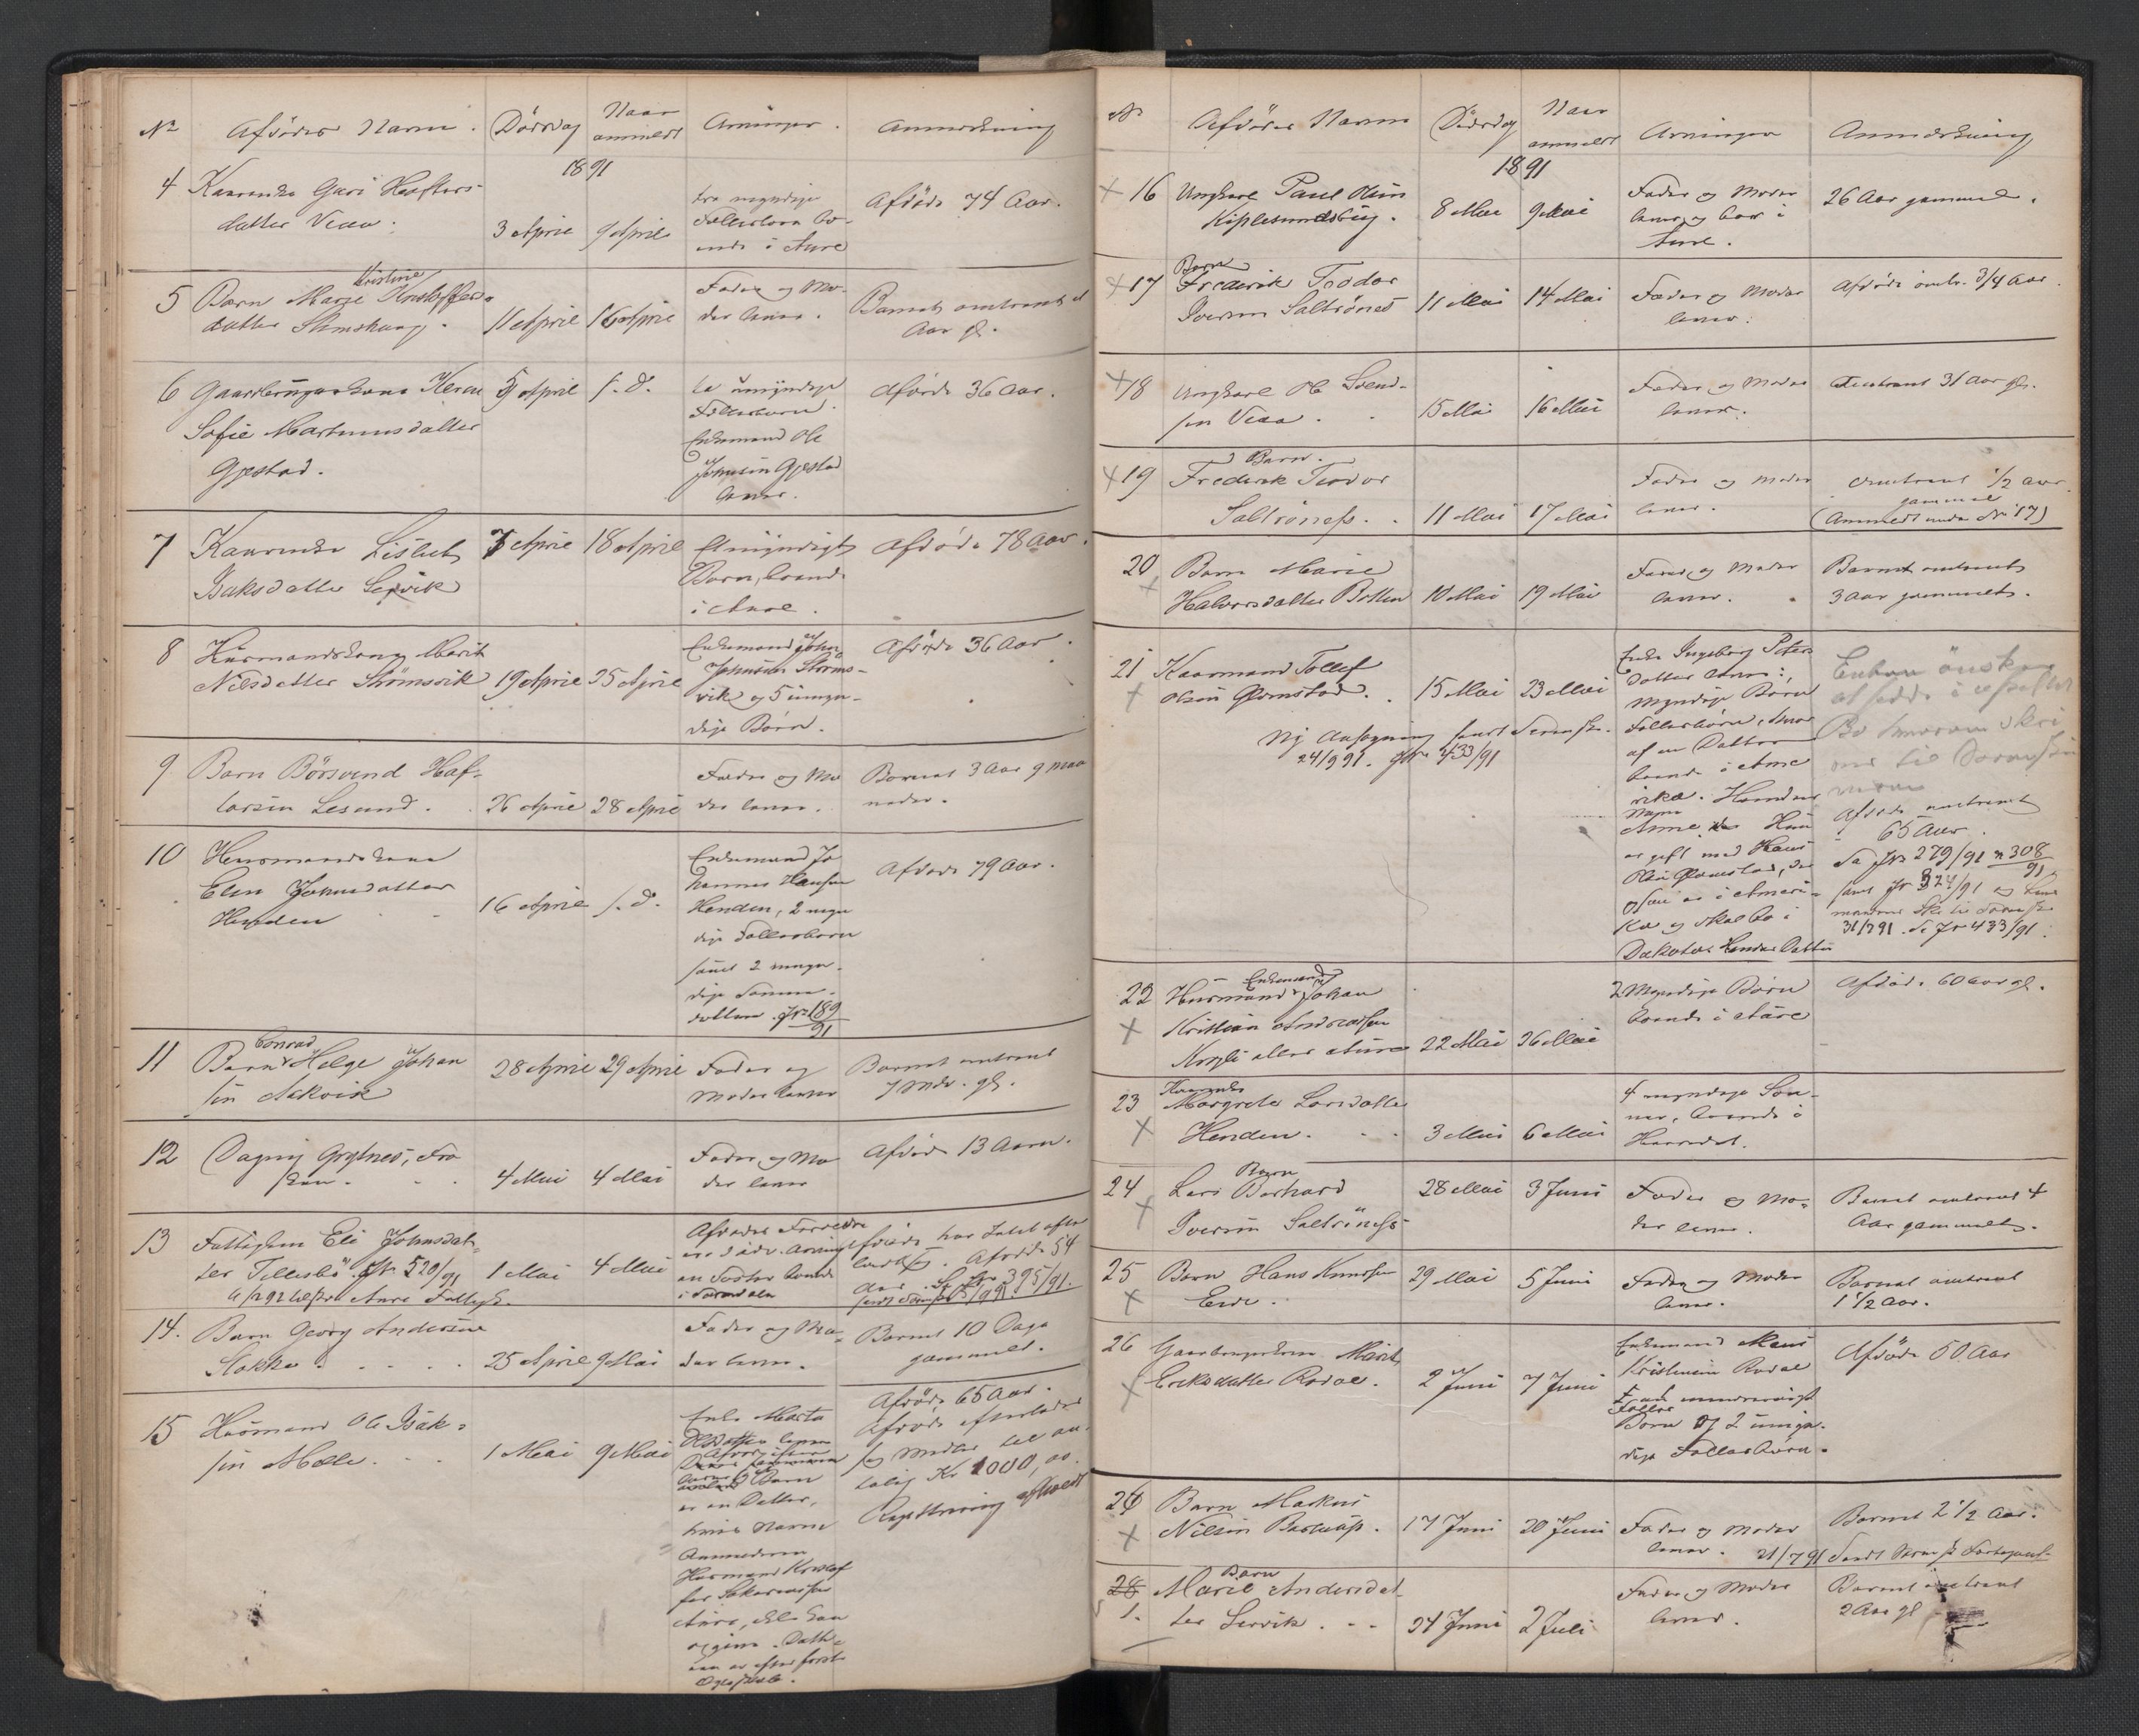 No Afdødes Navn. Dødsdag Naar anmeldt Arvinger. Anmerkning
1891
4 Kaarenke Guri Haftors-
datter Veaa.
3 April 9 April
tre myndige
Fællesbørn bo-
ende i Aure
Afdøde 74 Aar.
5 Barn Marie Kristine Kristoffers-
datter
11 April 16 April
Fader og Mo-
der lever.
Barnet omtrent et
Aar gl.
6 Gaardbrugerkone Keren
Sofie Martinusdatter
Gjestad.
5 April s. D.
umyndige
Fællesbørn.
Enkemand Ole
Johnsen Gjestad
lever.
Afdøde 36 Aar.
7 Kaarenke Lisbet
Isaksdatter Lervik
7 April 18 April
Et myndigt
Barn, boende
i Aure.
Afdøde 78 Aar.
8 Husmandskone Marit
Nilsdatter Strømsvik
19 April 25 April
Enkemand John
Johnsen Strøms-
vik og 5 umyn-
dige Børn.
Afdøde 36 Aar.
9 Barn Børsvend Haf-
torsen Lesund.
26 April 28 April
Fader og Mo
der lever.
Barnet 3 Aar 9 maa
neder.
10 Husmandskone
Elen Johnsdatter
Henden
16 April s. D.
Enkemand Jo
hannes Hansen
Henden, 2 myn
dige Fællesbørn
samt 2 myn-
dige Sønne-
døttre. Jr 189/91
Afdøde 79 Aar.
11 Barn Conrad Helge Johan
sen Aakvik
28 April 29 April
Fader og
Moder lever
Barnet omtrent
7 Mdr. gl.
12 Dagny Grytnes, Frø
ken.
4 Mai 4 Mai
Fader og Mo
der lever
Afdøde 13 Aar.
13 Fattiglem Eli Johnsdat-
ter Tellesbø. Jr 520/91
1 Mai 4 Mai
Afdødes Forældre
ere døde. Arving
en Søster boende
i Surendalen
Afdøde har Intet efter
ladt sig. Afdøde 54
Aar. Se Jr 395/91.
14. Barn Georg Andersen
Stokke.
25 April 9 Mai
Fader og Mo-
der lever.
Barnet 10 Dage
gammelt.
15 Husmand Ole Isak-
sen Melle.
1 Mai 9 Mai
Enke Marta
Olsdatter lever
Barn
er en Datter,
hvis Navn
Anmelderen
Husmand Kristof
fer
Aure, ikke kan
opgive. Datte-
ren er efter første
Ægteskab.
Afdøde 65 Aar.
Afdøde efterlader
sig Midler til an-
talig Kr 1000,00.
Registrering afholdt
No Afdødes Navn Dødsdag Naar anmeldt Arvinger Anmerkning
1891
16 Ungkarl Paul Olsen
Kiplesundsbug.
8 Mai 9 Mai
Fader og Moder
lever og bor i
Aure.
26 Aar gammel.
17 Barn
Frederik Teodor
Iversen Saltrønes
11 Mai 14 Mai
Fader og Moder
lever.
Afdøde omtr. 3/4 Aar.
18 Ungkarl Ole Svend-
sen Veaa.
15 Mai 16 Mai
Fader og Moder
lever.
Omtrent 31 Aar gl.
19 Barn.
Frederik Teodor
Saltrøness.
11 Mai 17 Mai
Fader og Moder
lever.
Omtrent 1/2 Aar
gammel
(Anmeldt under No 17)
20 Barn Marie
Halvorsdatter Botten
10 Mai 19 Mai
Fader og Moder
lever.
Barnet omtrent
3 Aar gammelt.
21 Kaarmand Tollef
Olsen Glomstad.
15 Mai 23 Mai
Ny Ansøgning sendt Sorensk.
24/9 91. Jr 433/91
Enke Ingeborg Peters
datter lever.
myndige Børn
Fællesbørn, hvor
af en Datter
boende i Ame
rika. Hendes
Navn
Anne. Hun
er gift med Hans
Olsen Glomstad, der
ogsaa er i Ameri-
ka og skal bo i
Dakota.
Enken ønsker
at sidde i uskiftet
Bo hvorom skri
ves til Sorenskri
veren
Afdøde omtrent
65 Aar.
Se Jr 279/91 n 308/91
samt Jr 324/91 og Lens
mandens Skr. til Sorensk.
31/7 91. Se Jr 433/91.
22 Husmand Enkemand Johan
Kristian Andreassen
eller Aure
22 Mai 26 Mai
2 Myndige Børn
boende i Aure
Afdøde 60 Aar gl.
23 Kaarenke
Margrete Larsdatter
Henden.
3 Mai 6 Mai
4 myndige Søn-
ner, boende i
Herredet.
24 Barn
Lars Berhard
Iversen Saltrøness
28 Mai 3 Juni
Fader og Mo-
der lever.
Barnet omtrent 4
Aar gammelt.
25 Barn Hans Knudsen
Eide.
29 Mai 5 Juni
Fader og Moder
lever.
Barnet omtrent
1 1/2 Aar.
26 Gaardbrugerkone Marit
Eriksdatter Rodal.
2 Juni 7 Juni
Enkemand Mons
Kristensen Rodal
Et mindreaarigt
Fælles
Barn og 2 umyn-
dige Fællesbørn.
Afdøde 50 Aar
26 Barn Markus
Nilsen Baskop.
17 Juni 20 Juni
Fader og Moder
lever.
Barnet 2 1/2 Aar.
21/7 91 Sendt Sorensk. Fortegnelse
28 Barn
1. Marie Andersdat
ter Lervik.
24 Juni 2 Juli
Fader og Moder
lever.
Barnet omtrent
2 Aar gl